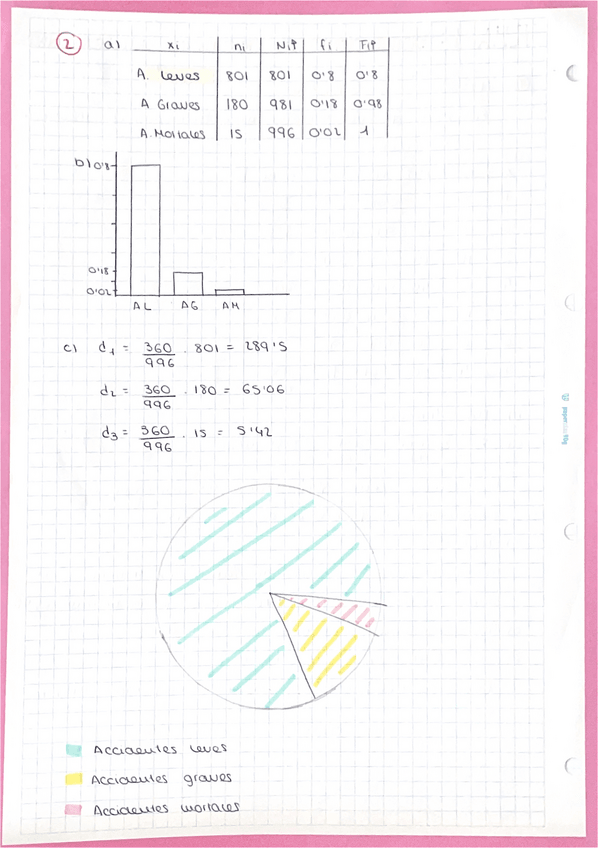 2 a) xi ni Ni↑ fi Fi↑
A. Leves 801 801 0'8 0'8
A Graves 180 981 0'18 0'98
A. Mortales 15 996 0'02 1
b) 0'8
0'18
0'02
AL AG AM
c) d1 = 360/996 . 801 = 289'5
d2 = 360/996 . 180 = 65'06
d3 = 360/996 . 15 = 5'42
Accidentes leves
Accidentes graves
Accidentes mortales